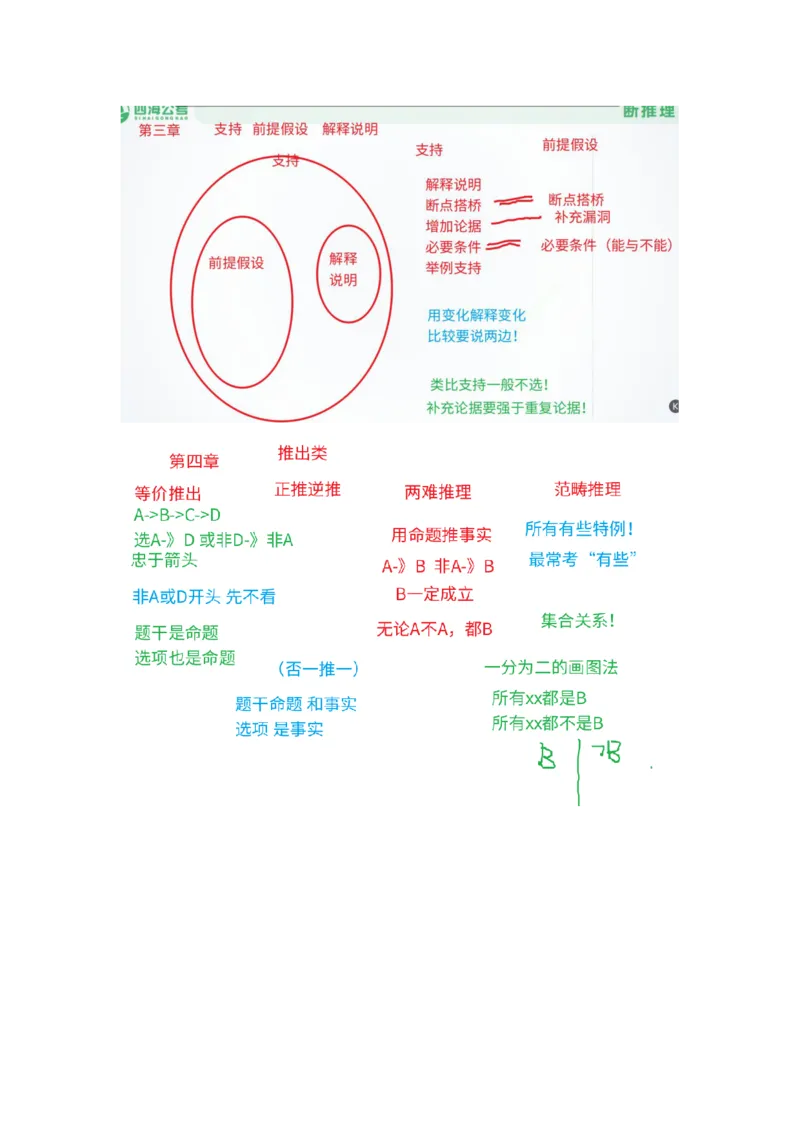 四海公考
断推理
第三章 支持 前提假设 解释说明
支持
前提假设
解释
说明
支持 前提假设
解释说明
断点搭桥 断点搭桥
增加论据 补充漏洞
必要条件 必要条件（能与不能）
举例支持
用变化解释变化
比较要说两边！
类比支持一般不选！
补充论据要强于重复论据！
K
第四章 推出类
等价推出
A->B->C->D
选A-》D 或非D-》非A
忠于箭头
非A或D开头 先不看
题干是命题
选项也是命题
正推逆推
（否一推一）
题干命题 和事实
选项 是事实
两难推理
用命题推事实
A-》B 非A-》B
B一定成立
无论A不A，都B
范畴推理
所有有些特例！
最常考“有些”
集合关系！
一分为二的画图法
所有xx都是B
所有xx都不是B
B ¬B